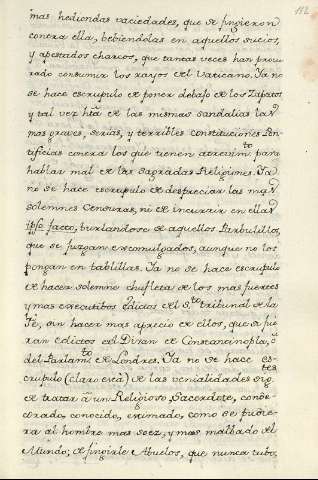 112
mas hediondas vaciedades, que se fingieron
contra ella, bebiendolas en aquellos sucios,
y apestados charcos, que tantas veces han procu-
rado consumir los rayos del Vaticano. Ya no
se hace escrupulo de poner debajo de los Zapatos
y tal vez hta de las mismas sandalias las
mas graves, serias, y terribles constituciones Pon-
tificias contra los que tienen atrevimto para
hablar mal de las sagradas Religiones. Ya
no se hace escrupulo de despreciar las mas
solemnes Censuras, ni de incurrir en ellas
ipso facto, burlandose de aquellos Parbulillos,
que se juzgan excomulgados, aunque no los
pongan en tablillas. Ya no se hace escrupulo
de hacer solemne chufleta de los mas fuertes
y mas executibos Edictos del Sto tribunal de la
Fe, sin hacer mas aprecio de ellos, que si fue-
ran edictos del Divan de Constantinopla, o
del Parlamto de Londres. Ya no se hace es-
crupulo (claro está) de las venialidades sigtes
de tratar à un Religioso Sacerdote, conde-
corado, conocido, estimado, como se pudie-
ra al hombre mas soez, y mas malbado del
Mundo; de fingirle Abuelos, que nunca tubo,